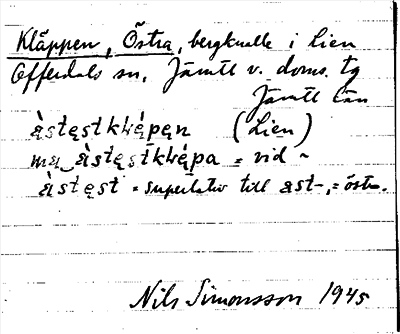 Kläppen, Östra, bergknalle i Lien
Offerdals sn, Jämtl v. doms. tg
Jämtl län
àstęstkłę́pęn (Lien)
mę àstęstkłę́pa = vid ~
àstęst = superlativ till ast-, = öst-.
Nils Simonsson 1945